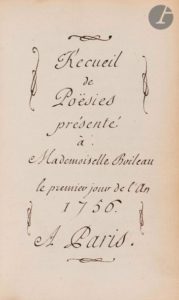 Recueil
de
Poësies
présenté
à
Mademoiselle Boileau
le premier jour de l'An
1756.
A Paris.